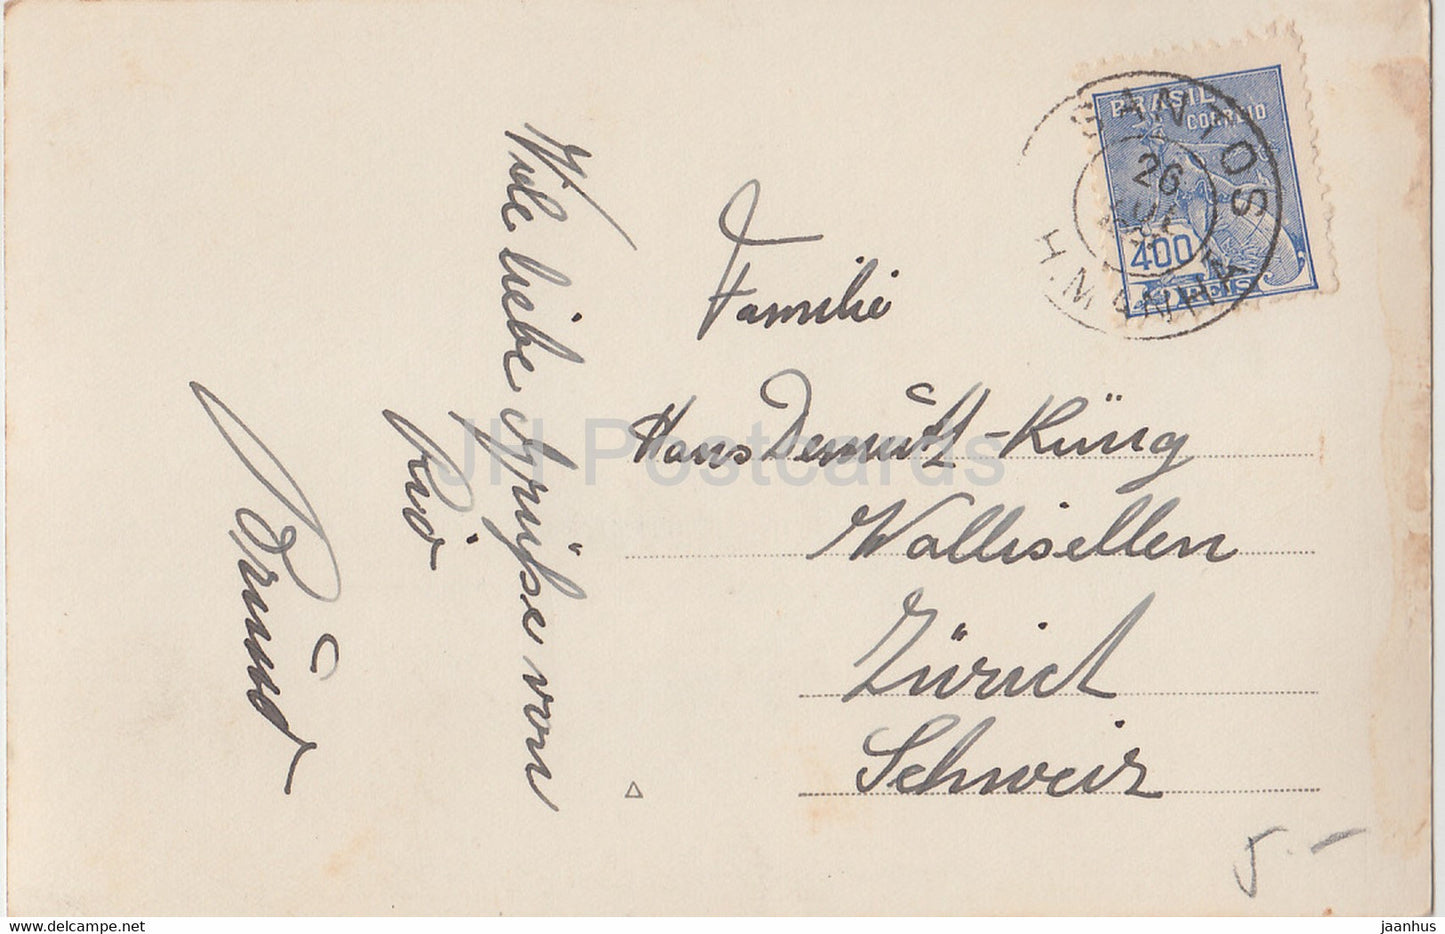 Viele liebe Grüsse von
Rio
Bruno
Familie
Hans Demuth-Küng
Wallisellen
Zürich
Schweiz
BRASIL
CORREIO
400
REIS
SANTOS
26
5.-
JH Postcards
jaanhus